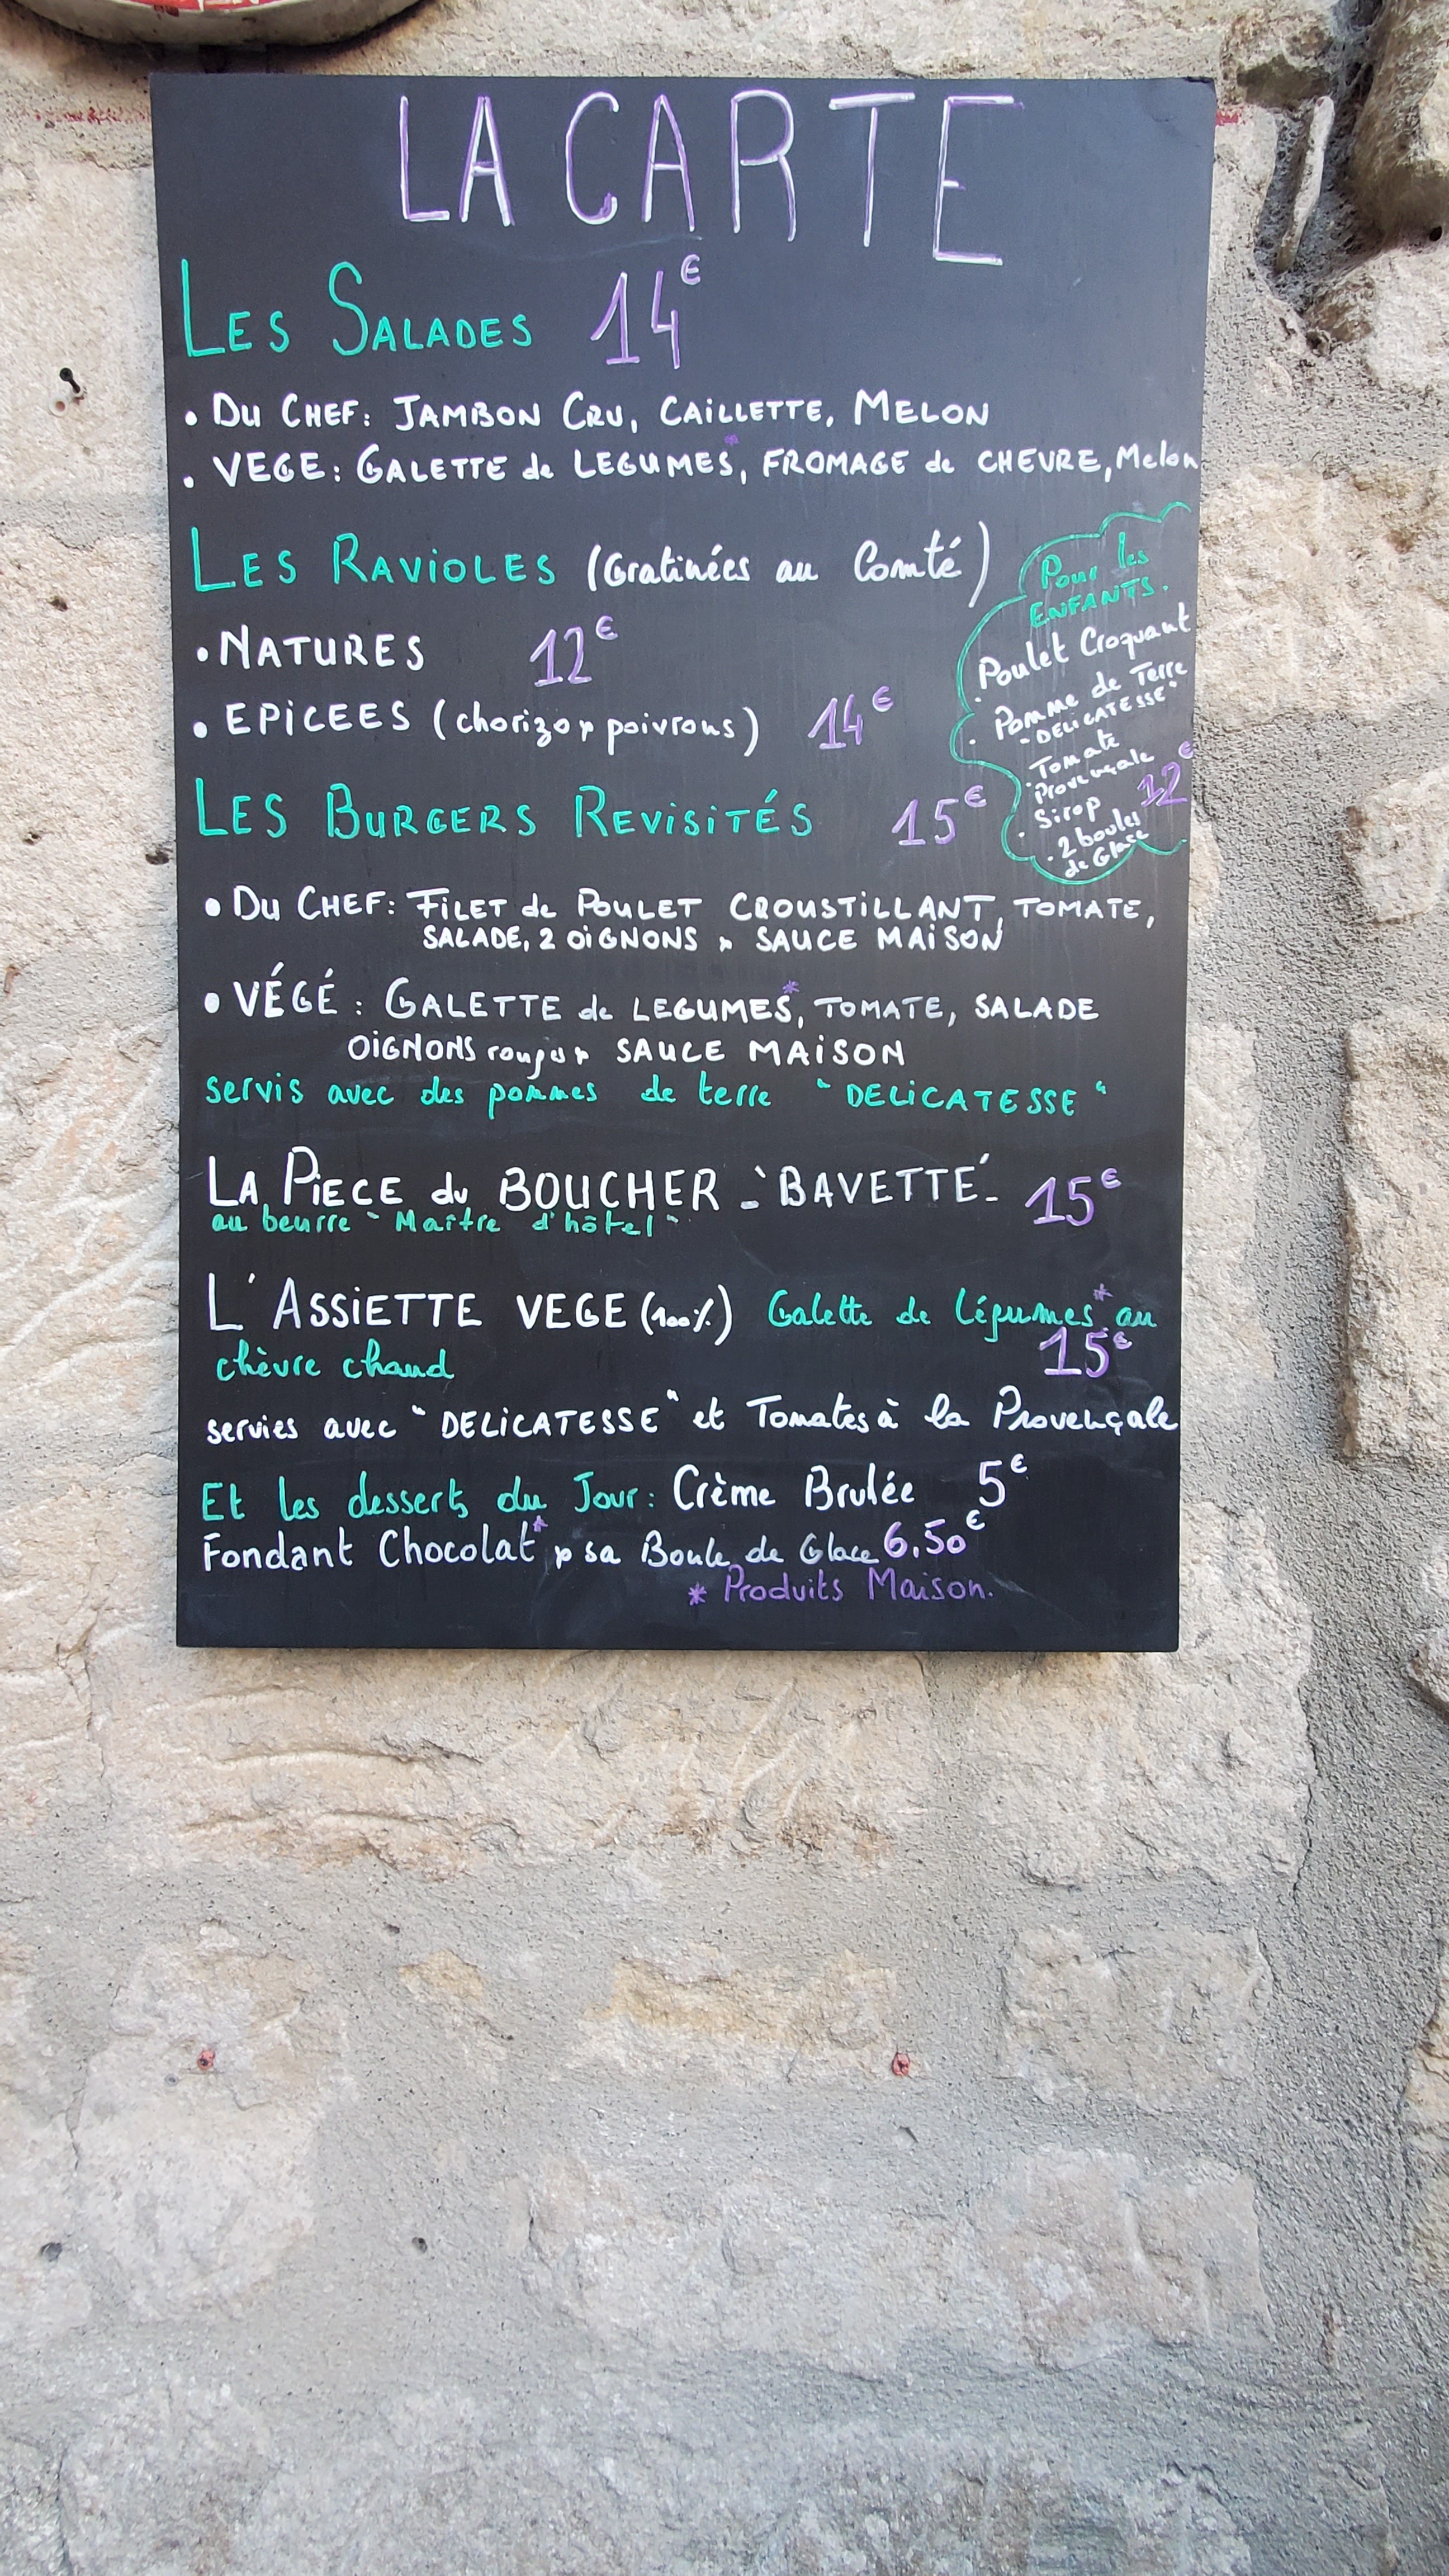 LA CARTE
LES SALADES 14€
• DU CHEF: JAMBON CRU, CAILLETTE, MELON
• VEGE: GALETTE de LEGUMES*, FROMAGE de CHEVRE, Melon
LES RAVIOLES (Gratinées au Comté)
• NATURES 12€
• EPICEES (chorizo & poivrons) 14€
Pour les
ENFANTS.
• Poulet Croquant
• Pomme de Terre
"DELICATESSE"
• Tomate
Provençale
• Sirop 12€
• 2 boules
de Glace
LES BURGERS REVISITÉS 15€
• DU CHEF: FILET de POULET CROUSTILLANT, TOMATE,
SALADE, 2 OIGNONS & SAUCE MAISON
• VÉGÉ: GALETTE de LEGUMES*, TOMATE, SALADE
OIGNONS rouges & SAUCE MAISON
servis avec des pommes de terre "DELICATESSE"
LA PIECE du BOUCHER - "BAVETTE" - 15€
au beurre "Maître d'hôtel"
L'ASSIETTE VEGE (100%) Galette de légumes* au
chèvre chaud 15€
servies avec "DELICATESSE" et Tomates à la Provençale
Et les desserts du Jour: Crème Brulée 5€
Fondant Chocolat* & sa Boule de Glace 6.50€
* Produits Maison.